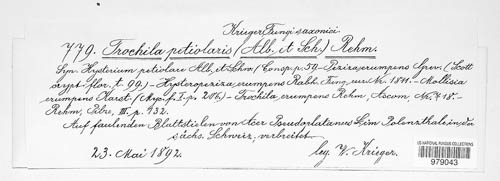 Krieger Fungi saxonici
779. Trochila petiolaris (Alb. et Sch.) Rehm.
Syn. Hysterium petiolare Alb. et Schw. (Consp. p. 59. - Peziza erumpens Grev. (Scott.
crypt. flor. t. 99.) - Hysteropeziza erumpens Rabh. Fung. eur. Nr. 1811. - Mollisia
erumpens Karst. (Myc. f. I. p. 206.) - Trochila erumpens Rehm, Ascom. Nr. 718. -
Rehm, Pilze, III. p. 132.
Auf faulenden Blattstielen von Acer Pseudoplatanus L. im Polenzthale, in der
sächs. Schweiz, verbreitet.
23. Mai 1892. leg. W. Krieger.
US NATIONAL FUNGUS COLLECTIONS
979043